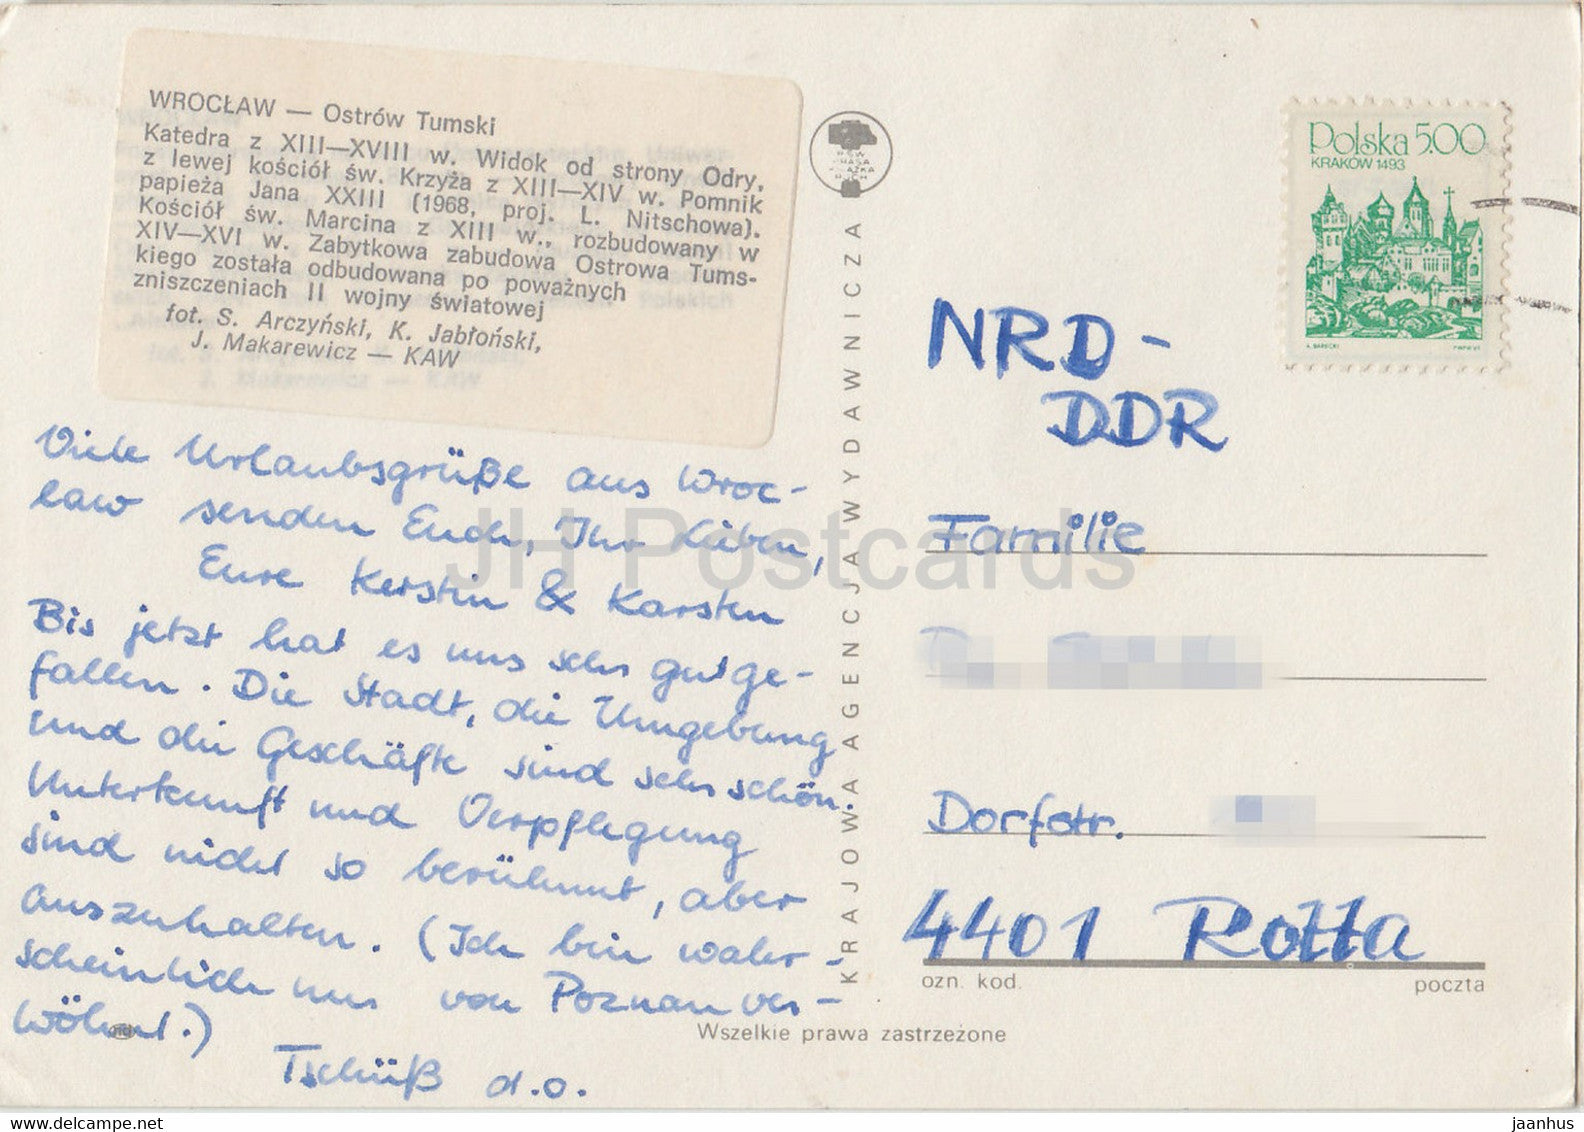 WROCŁAW — Ostrów Tumski
Katedra z XIII—XVIII w. Widok od strony Odry,
z lewej kościół św. Krzyża z XIII—XIV w. Pomnik
papieża Jana XXIII (1968, proj. L. Nitschowa).
Kościół św. Marcina z XIII w., rozbudowany w
XIV—XVI w. Zabytkowa zabudowa Ostrowa Tums-
kiego została odbudowana po poważnych
zniszczeniach II wojny światowej
fot. S. Arczyński, K. Jabłoński,
J. Makarewicz — KAW
Viele Urlaubsgrüße aus Wroc-
ław senden Euch, Ihr Lieben,
Eure Kerstin & Karsten
Bis jetzt hat es uns sehr gut ge-
fallen. Die Stadt, die Umgebung
und die Geschäfte sind sehr schön.
Unterkunft und Verpflegung
sind nicht so berühmt, aber
auszuhalten. (Ich bin wahr-
scheinlich nur von Poznan ver-
wöhnt.)
Tschüß d.o.
KRAJOWA AGENCJA WYDAWNICZA
Wszelkie prawa zastrzeżone
Polska 5.00
KRAKÓW 1493
NRD-
DDR
Familie
Dorfstr.
4401 Rotta
ozn. kod.
poczta
JH Postcards
www.delcampe.net
jaanhus